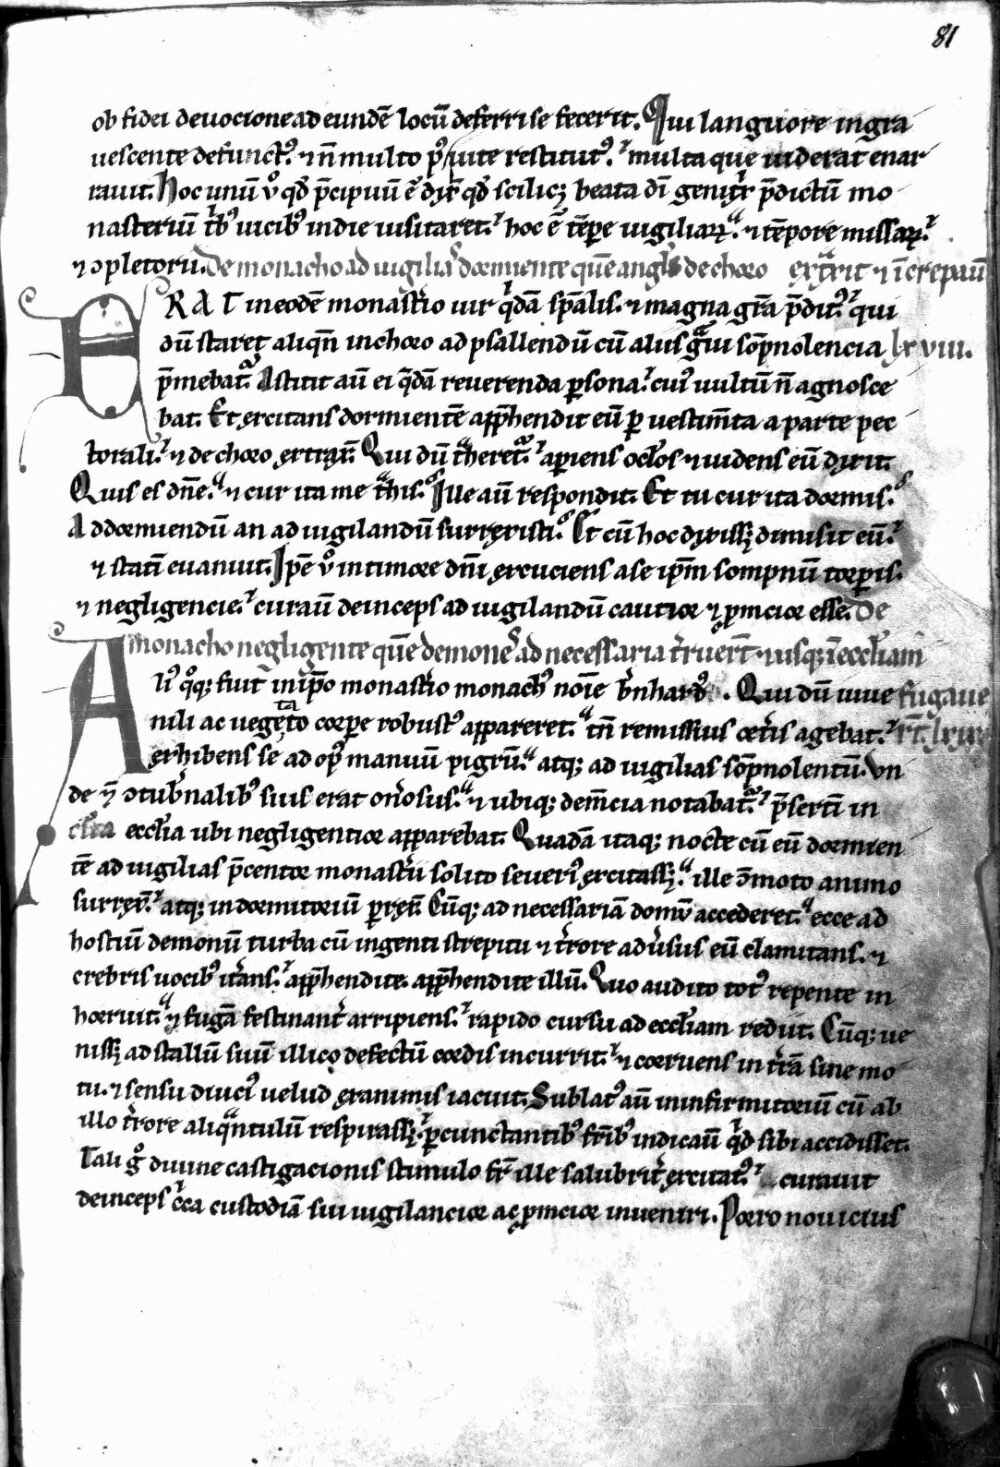 81
ob fidei deuocione ad eundē locū deferri se fecerit. Qui languore ingra
uescente defunctꝰ ⁊ nͫ multo pꝰ uite restitutꝰ. multa que uiderat enar
rauit. Hoc unū ỽ qđ p̄cipuū ē dix̄ qđ scilicꝫ beata dī genitx̄ p̄dictū mo
nasteriū t̄bꝰ uicibꝰ in die uisitaret. hoc ē tēpe uigiliaꝝ. ⁊ tēpore missaꝝ.
⁊ ↄpletorii. De monacho ad uigiliaˢ dormiente quē anglꝰ de choro extͣxit ⁊ īcrepauit
ERAT in eodē monastio uir qͥdā sp̄alis. ⁊ magna gr̄a p̄ditꝰ. qui
dū staret aliqn̄ in choro ad psallendū cū aliis gͣui sop̄nolencia lxviii.
p̄mebatᷣ. Astitit aū ei qͣdā reuerenda ꝑsona. cuiꝰ uultū n̄ agnosce
bat. Et excitans dormientē app̄hendit eū ꝑ uestim̄ta a parte pec
torali. ⁊ de choro extͣxit. Qui dū tͣheretᷣ. apiens oclos ⁊ uidens eū dixit.
Quis es dn̄e. ⁊ cur ita me tͣhis. Ille aū respondit. Et tu cur ita dormis.
Ad dormiendū an ad uigilandū surrexisti. Et cū hoc dixissꝫ dimisit eū.
⁊ statī euanuit. Ip̄e ỽ in timore dn̄i excuciens a se ip̄m sompnū corpis.
⁊ negligencie. curauͭ deinceps ad uigilandū caucior ⁊ ꝓmcior esse. De
monacho negligente quē demoneˢ ad necessaria r̄uert̄ ⁊ usqꝫ ī eccl̄iam
Aliꝰ qͦqꝫ fuit in ip̄o monastio monachꝰ noīe b̄nhardꝰ. Qui dū iuue fugaue
nili ac vegetato corpe robustꝰ appareret. tn̄ remissius cetis agebat. rt̄. lxix
exhibens se ad opꝰ manuū pigrū. atqꝫ ad uigilias sop̄nolentū. Vn
de ⁊ ↄtub̄nalibꝰ suis erat on̄osus. ⁊ ubiqꝫ dem̄cia notabatᷣ. p̄sertī in
eccl̄ia ubi negligentior apparebat. Quadā itaqꝫ nocte cū eū dormien
tē ad uigilias p̄centor monast̄ii solito seueriꝰ excitassꝫ. ille ↄmoto animo
surrex̄. atqꝫ in dormitoriū ꝑrex̄. Cūqꝫ ad necessariā domū accederet. ecce ad
hostiū demonū turba cū ingenti strepitu ⁊ t̄rore adūsus eū clamitans. ⁊
crebris uocibꝰ it̄ans. app̄hendite. app̄hendite illū. Quo audito totꝰ repente in
horruit. ⁊ fugā festinanͭ arripiens. rapido cursu ad eccl̄iam rediit. Cūqꝫ ue
nissꝫ ad stallū suū illico defectū cordis incurrit. ⁊ corruens in t̄rā sine mo
tu. ⁊ sensu diuciꝰ velud exanimis iacuit. Sublatꝰ aū in infirmitoriū cū ab
illo t̄rore aliqͣntulū respirassꝫ. ꝑcunctantibꝰ fr̄ibꝰ indicauͭ qͥd sibi accidisset.
Tali gͦ diuine castigacionis stimulo fr̄ ille salubrit̄ excitatꝰ. curauit
deinceps cͥca custodiā sui uigilancior ac ꝓmcior inueniri. Porro nouicius